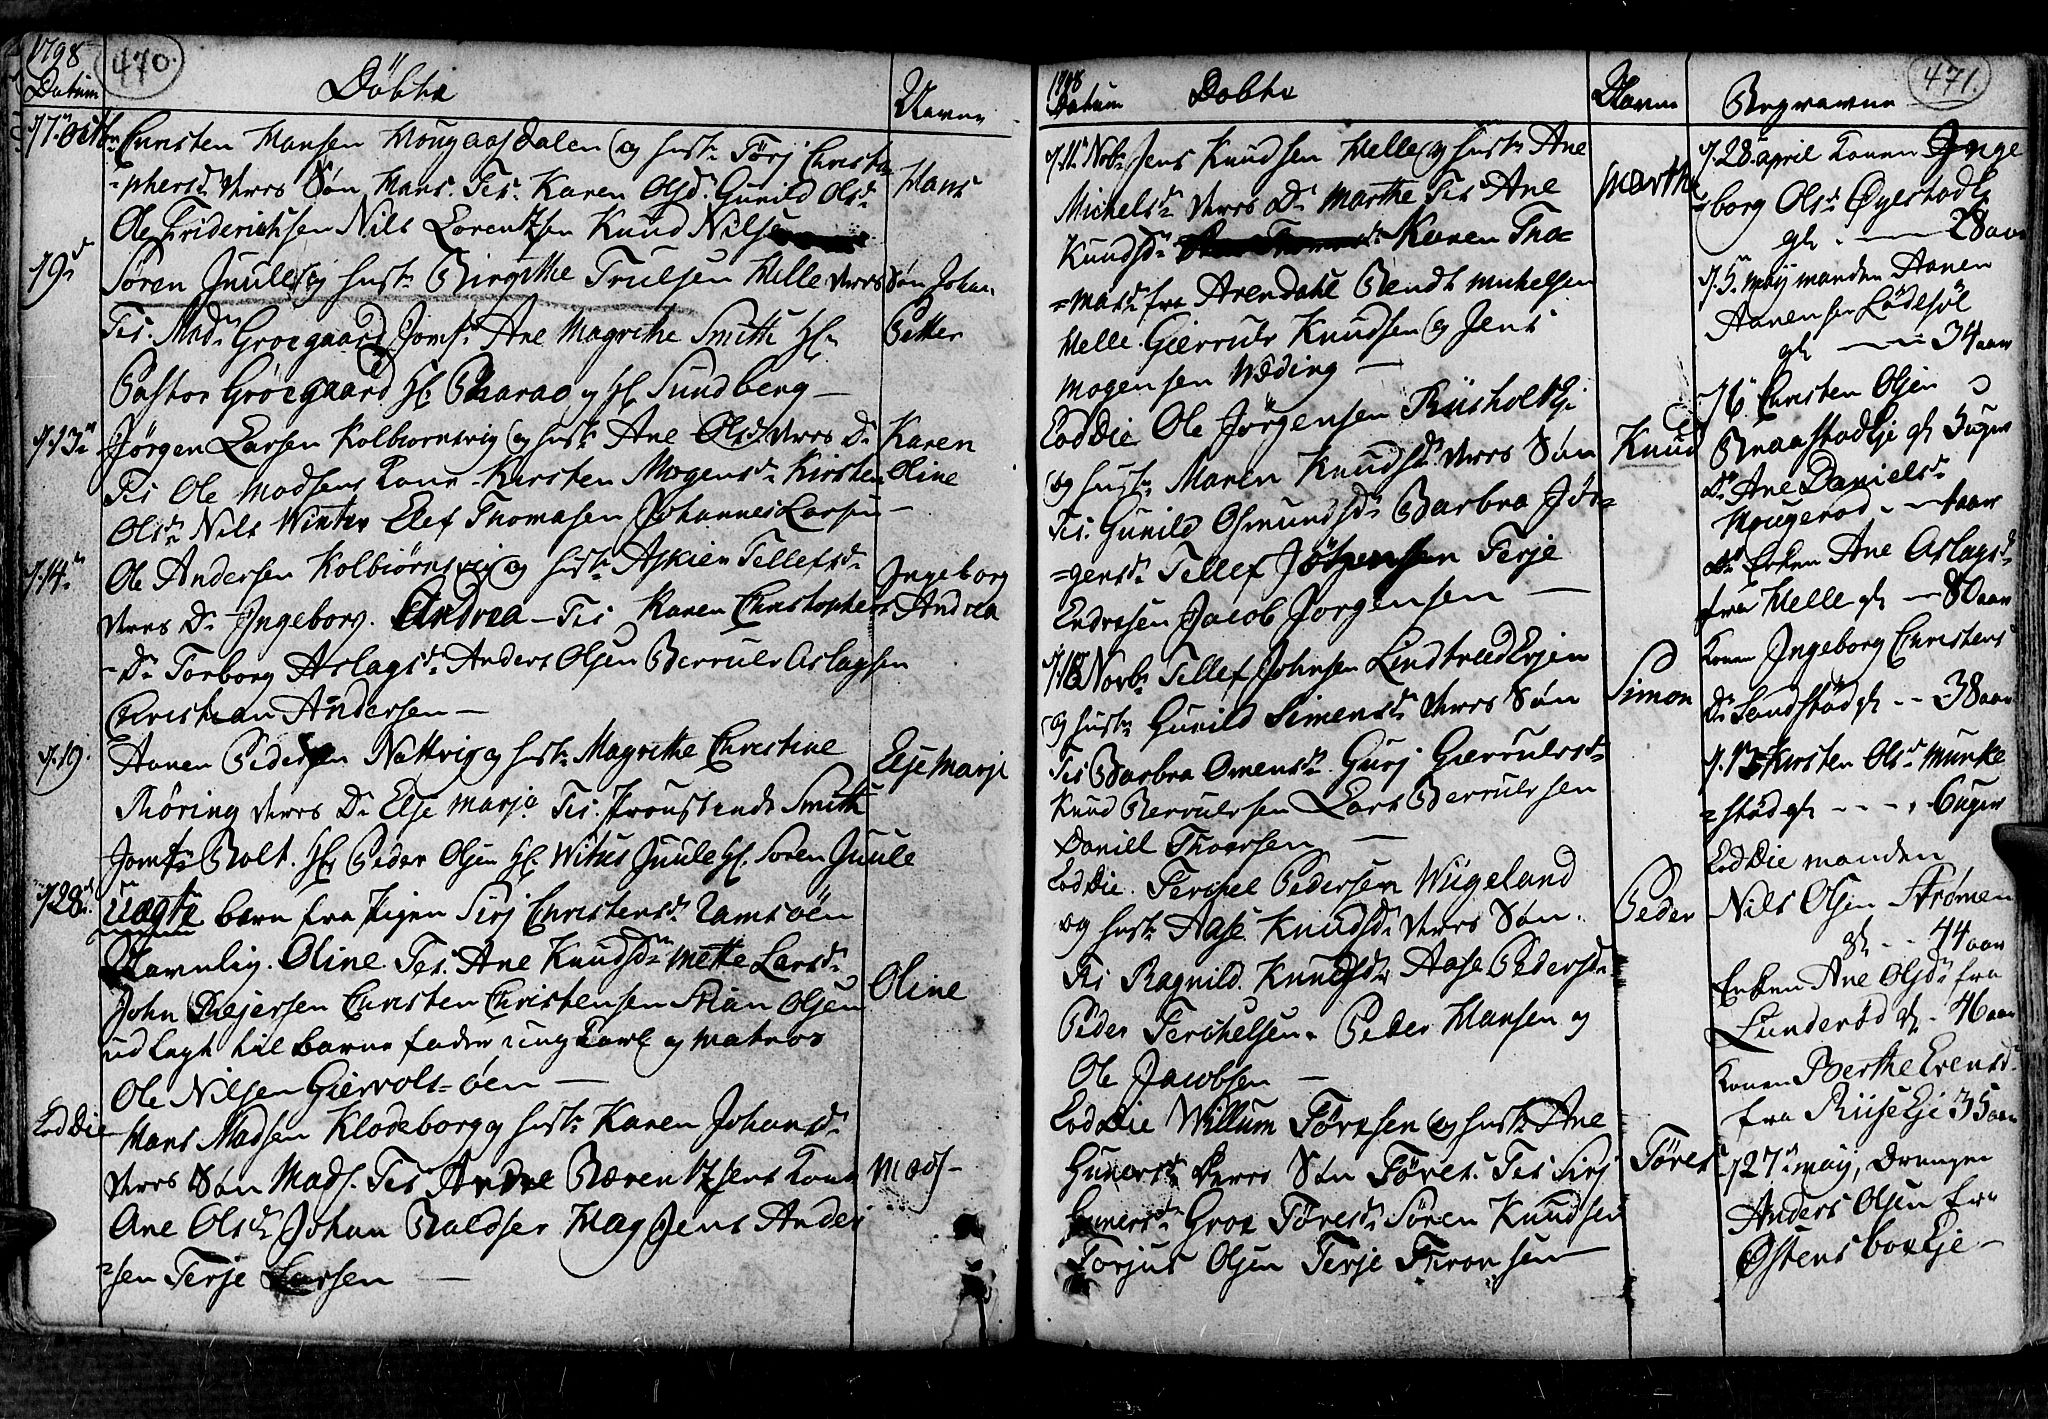 1798
470.
Datum
Döbte
Navne
Christen Hansen Hougaasdalen og hustr Törj Christo-
=phersdr deres Sön Hans. Tes. Karen Olsdr Gunild Olsdr
Hans
Ole Friderichsen Nils Lorentzen Knud Nilsen
d 9de
Sören Juulls og hustr Birgithe Trulsen Helle deres Sön Johan
Tes. Madm Groegaard Jomfr Ane Magrethe Smith Hr
Petter
Pastor Gröegaard Hr Pharao og Hr Sundberg —
d. 13de
Jörgen Larsen Kolbiornsvig og hustr Ane Olsdr deres Dr
Karen
Tes Ole Madsens Kone Kirsten Mogensdr Kirsten
Oline
Olsdr Nils Winter Elef Thomasen Johannes Larsen —
d. 14de
Ole Andersen Kolbiörnsvig og hustr Askien Tellefsdr
Ingeborg
deres Dr Ingeborg. Andrea — Tes Karen Christophers
Andrea
=Dr Torborg Aslagsdr Anders Olsen Berrulv Aslagsen
Christian Andersen —
d. 19.
Aanen Pedersen Nattvig og hustr Magrethe Christine
Else Marje
Thöring deres Dr Else Marja Tes. Proustinde Smith
Jomfr Bolt. Hr Peder Olsen Hr Witus Juule Hr. Sören Juule
d 28de
uægte barn fra Pigen Sirj Christensdr
Navnlig. Oline Tes. Ane Knudsdr Mette Larsdr
John Rejersen Christen Christensen Stian Olsen
Oline
udlagt til barne fader ung Karl og matros
Ole Nilsen Giervols=öen —
Eod Die
Hans Madsen Klodeborg og hustr Karen Johansdr
deres Sön Mads. Tes Andre Bærentzsens Kone
Mads —
Ane Olsdr Johan Baldser Hag Jens Ander
=sen Terje Larsen —
1798
471.
Datum
Dobte
Navne
Begravne
d. 11te Novbr Jens Knudsen Helle og hustr Ane
Michelsdr deres Dr Marthe Tes Ane
Marthe
Knudsdr Karen Tho=
=masdr fra Arendahl Bendt Michelsen
Helle Gierrulv Knudsen og Jens
Mogensen Wæding —
Eod Die Ole Jörgensen Riisholt Ej
og hustr Maren Knudsdr deres Sön
Knud
Tes. Gunild Osmundsdr Barbra Jör=
=gensdr Tellef Jörgensen Terje
Endresen Jacob Jorgensen —
d. 18 Novbr Tellef Johnsen Lindtveed Ejen
og hustr Gunild Simensdr deres Sön
Simon
Tes Barbra Omensdr Gurj Gierrulvsdr
Knud Berrulvsen Lars Berrulvsen
Daniel Thorsen —
Eod Die. Terchel Pedersen Wigeland
og hustr Aase Knudsdr deres Sön.
Peder
Tes Ragnild Knudsdr Aase Pedersdr
Peder Terchelsen. Peder Hansen og
Ole Jacobsen —
Eod Die Willum Törresen og hustr Ane
Gunersdr deres Sön Töres. Tes Sirj
Töres
Gunersdr Groe Töresdr Sören Knudsen
Torjus Olsen Terje Thronsen —
d. 28. april Konen Inge
=borg Olsdr ÖyestadEj
gl. — 28 aar
d. 5te maij manden Aanen
Aanensen Lödesöl
gl — 34 aar
d 6te Christen Olsen
BraastadEje gl 3 uger
Dr Ane Danielsdr
Hougerod — 1 aar
Dr Enken Ane Aslagsdr
fra Helle gl — 80 aar
Konen Ingeborg Christens
Dr Sandstöd gl — 38 aar
d. 13 Kirsten Olsdr Munke
=stöd gl — 6 uger
Eod Die manden
Nils Olsen Strömen
gl — 44 aar
Enken Ane Olsdr fra
Lunderöd gl — 46 aar
Konen Berthe Evensdr
fra RiiseEje 35 aar
d 27de maij, Drengen
Anders Olsen fra
ÖstensboeEje —